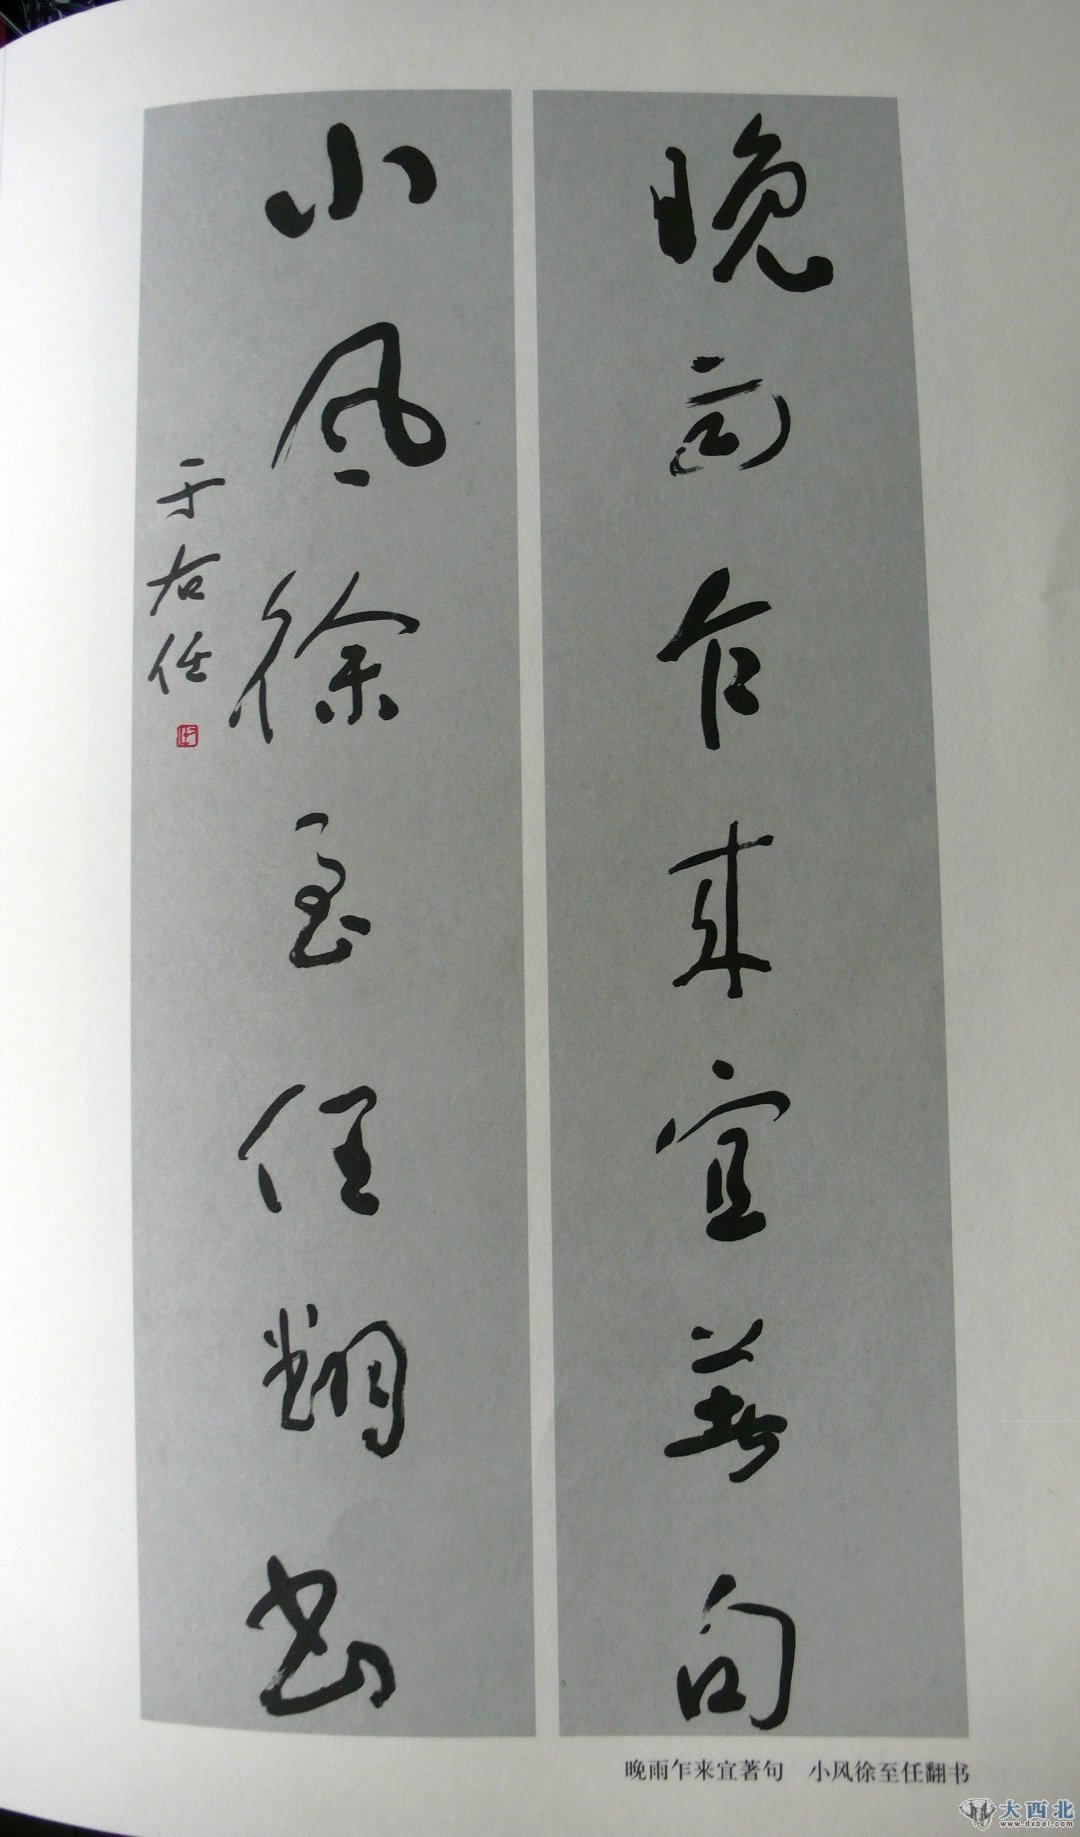 晚雨乍来宜著句
小风徐至任翻书
于右任
晚雨乍来宜著句 小风徐至任翻书
大西北
www.dxbei.com